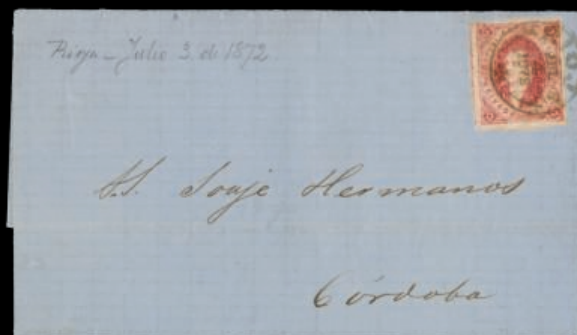 Rioja - Julio 3 de 1872
SS. Soaje Hermanos
Córdoba